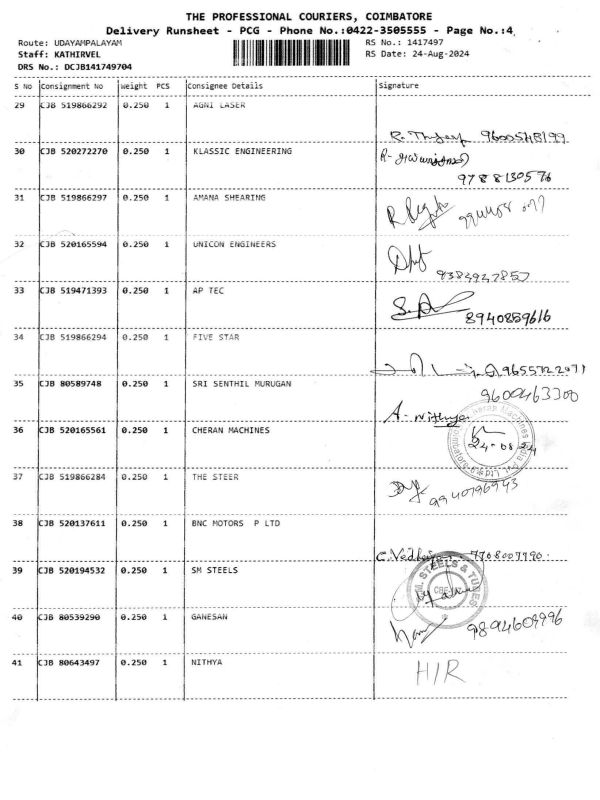 THE PROFESSIONAL COURIERS, COIMBATORE
Delivery Runsheet - PCG - Phone No.:0422-3505555 - Page No.:4
Route: UDAYAMPALAYAM RS No.: 1417497
Staff: KATHIRVEL RS Date: 24-Aug-2024
DRS No.: DCJB141749704
S No Consignment No Weight PCS Consignee Details Signature
29 CJB 519866292 0.250 1 AGNI LASER
9600548199
30 CJB 520272270 0.250 1 KLASSIC ENGINEERING
9788130576
31 CJB 519866297 0.250 1 AMANA SHEARING
32 CJB 520165594 0.250 1 UNICON ENGINEERS
9384947857
33 CJB 519471393 0.250 1 AP TEC
8940859616
34 CJB 519866294 0.250 1 FIVE STAR
9655722971
35 CJB 80589748 0.250 1 SRI SENTHIL MURUGAN
9600463300
A- Nithya
36 CJB 520165561 0.250 1 CHERAN MACHINES
24-08-24
37 CJB 519866284 0.250 1 THE STEER
9940796943
38 CJB 520137611 0.250 1 BNC MOTORS P LTD
7708007990
39 CJB 520194532 0.250 1 SM STEELS
STEELS & TUBES
CBE
40 CJB 80539290 0.250 1 GANESAN
9894609996
41 CJB 80643497 0.250 1 NITHYA
H/R